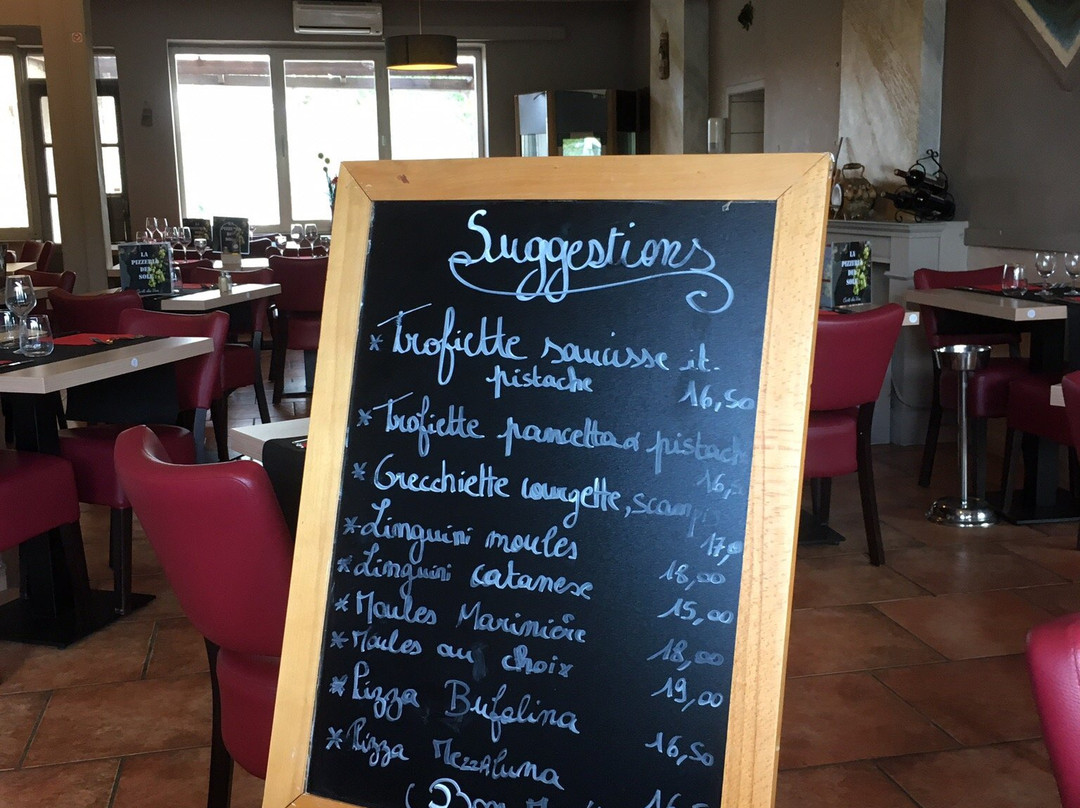 Suggestions
* Trofiette saucisse it.
pistache 16,50
* Trofiette pancetta & pistach
16,5
* Grecchiette courgette, scampis
17,0
* Linguini moules 18,00
* Linguini catanese 15,00
* Moules Marinière 18,00
* Moules au choix 19,00
* Pizza Bufalina 16,50
* Pizza Mezzaluna
Bon
LA
PIZZERIA
DEL
SOLE
LA
PIZZERIA
DEL
SOLE